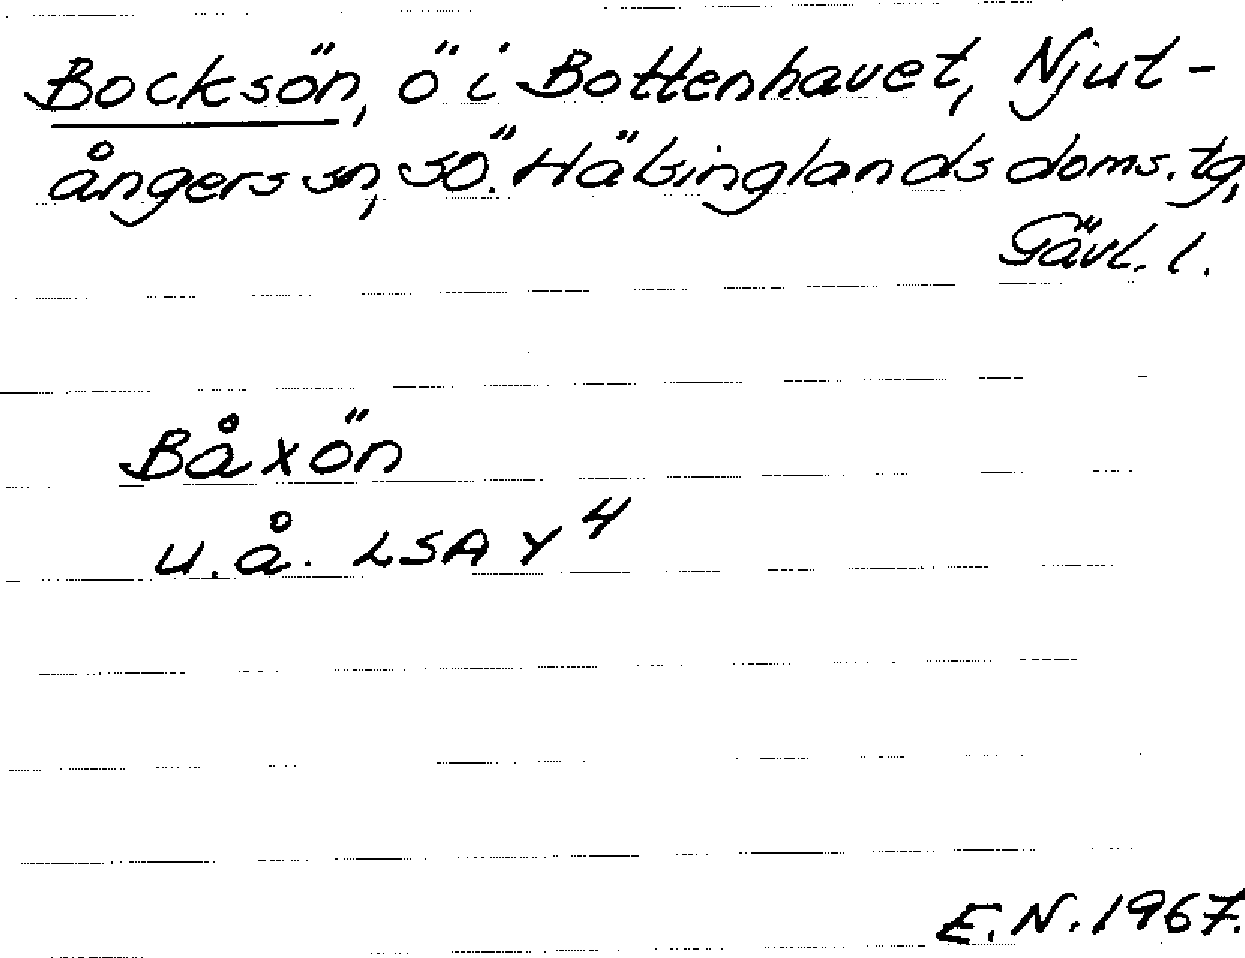 Bocksön, ö i Bottenhavet, Njut-
ångers sn, sö. Hälsinglands doms. tg,
Gävl. l.
Båxön
u.å. LSA Y 4
E.N. 1967.